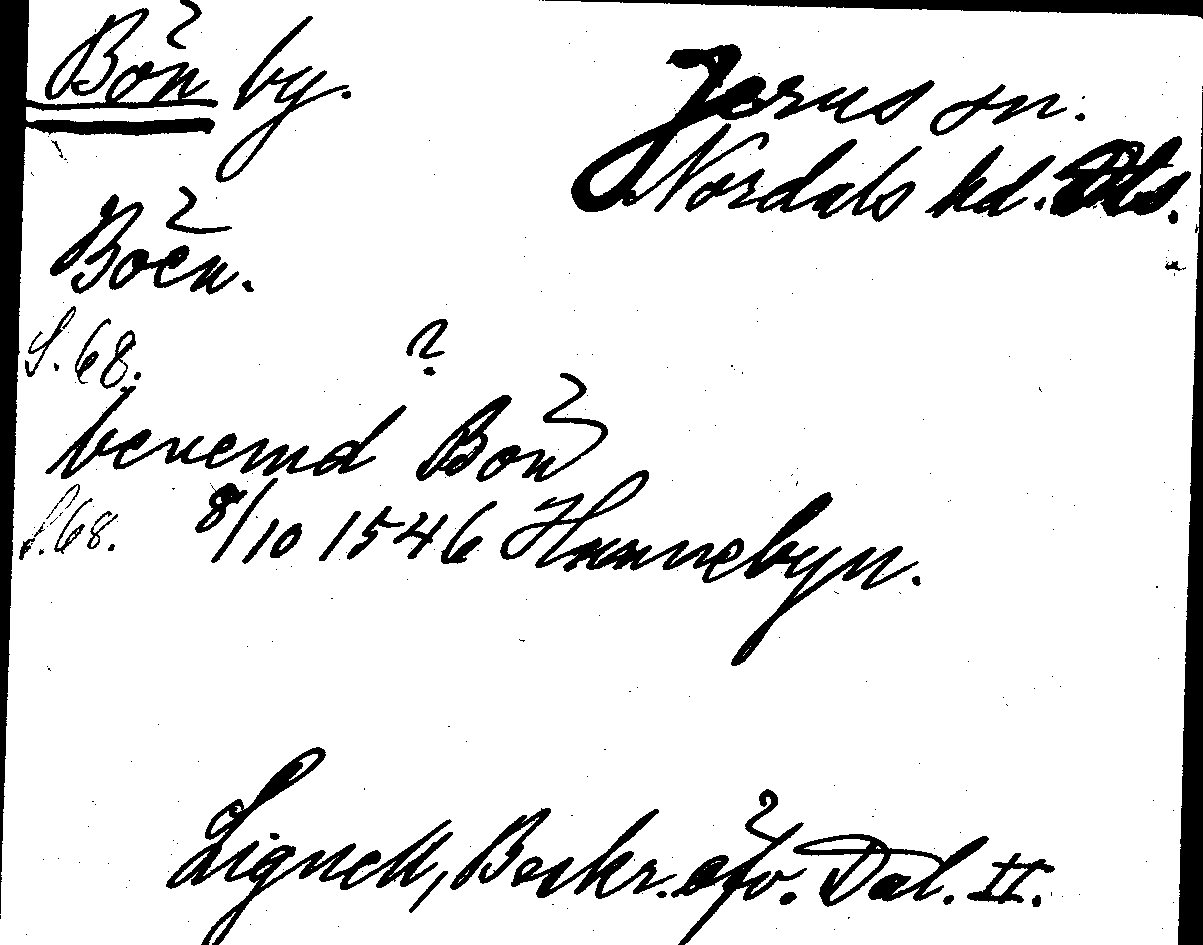 Bön by.
Jerus sn.
Nordals hd. Dls.
Böen.
S. 68.
?
benemd Bön
S. 68. 8/10 1546 Hannebyn.
Lignell, Beskr. öfv. Dal. II.